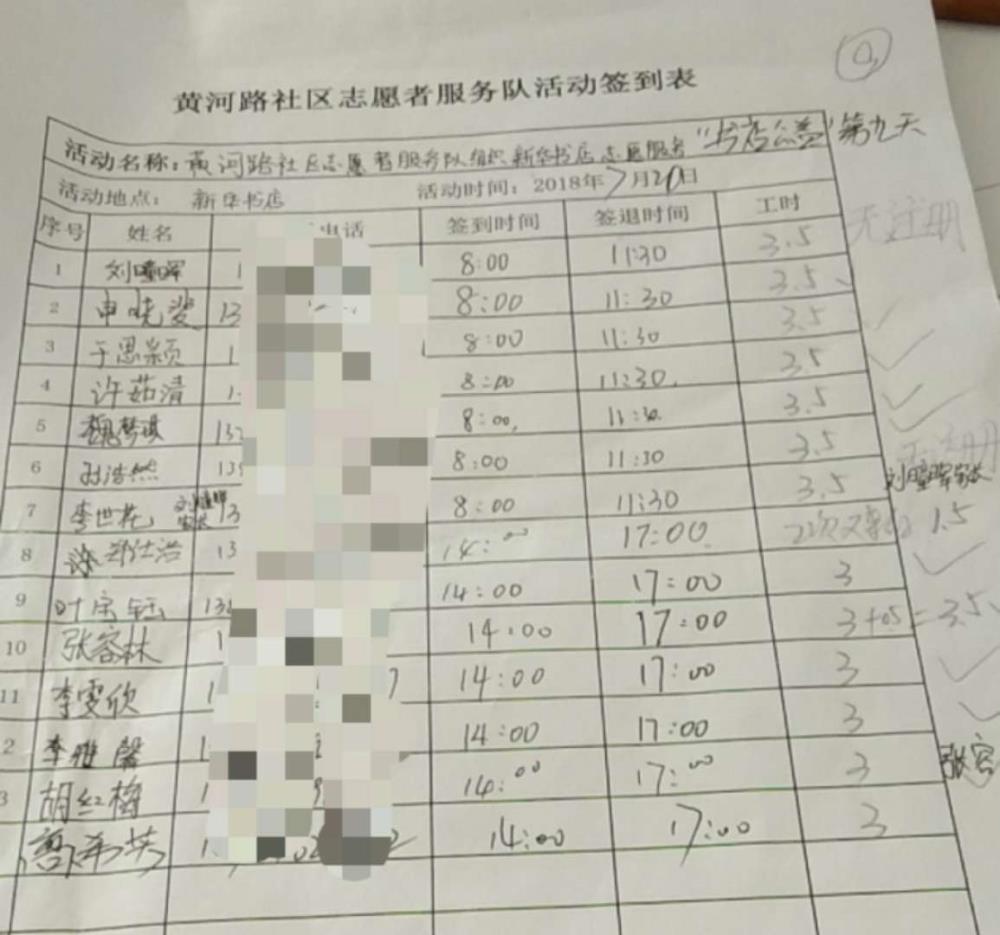 黄河路社区志愿者服务队活动签到表
活动名称：黄河路社区志愿者服务队组织新华书店志愿服务"书店公益"第九天
活动地点： 新华书店 活动时间：2018年7月20日
序号 姓名 电话 签到时间 签退时间 工时
1 刘瞳晖 1 8:00 11:30 3.5 无注册
2 申晓斐 13 8:00 11:30 3.5
3 于思颖 1 8:00 11:30 3.5
4 许茹清 1 8:00 11:30 3.5
5 魏梦琪 132 8:00 11:30 3.5
6 孙浩然 139 8:00 11:30 3.5 无注册
7 李世花 刘瞳晖家长 13 8:00 11:30 3.5 刘瞳晖家长
8 郑仕浩 13 14:00 17:00 1.5
9 叶宗钰 138 14:00 17:00 3
10 张容林 1 14:00 17:00 3+0.5=3.5
11 李雯欣 1 14:00 17:00 3
2 李雅馨 1 14:00 17:00 3
3 胡红梅 1 14:00 17:00 3 张容
希英 1 14:00 17:00 3